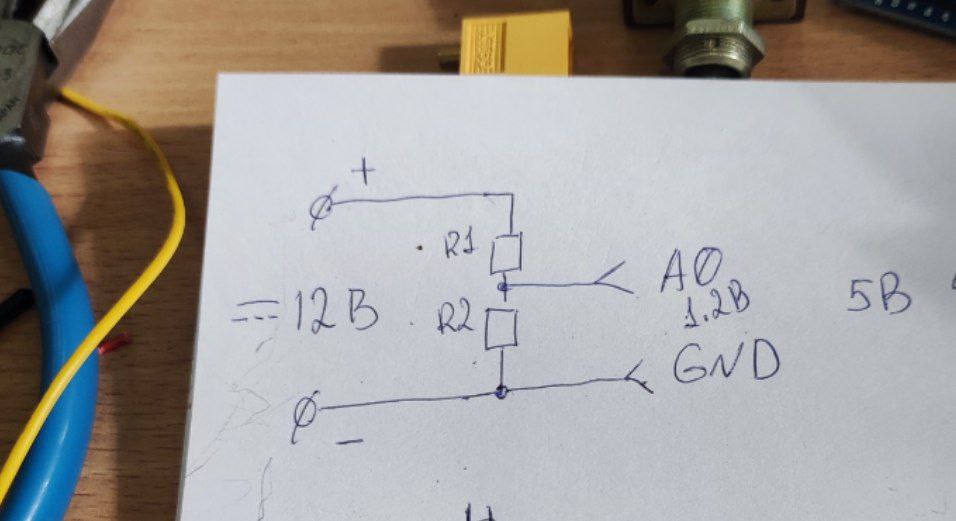 +
R1
A0
1.2В
5В
= 12В
R2
GND
-